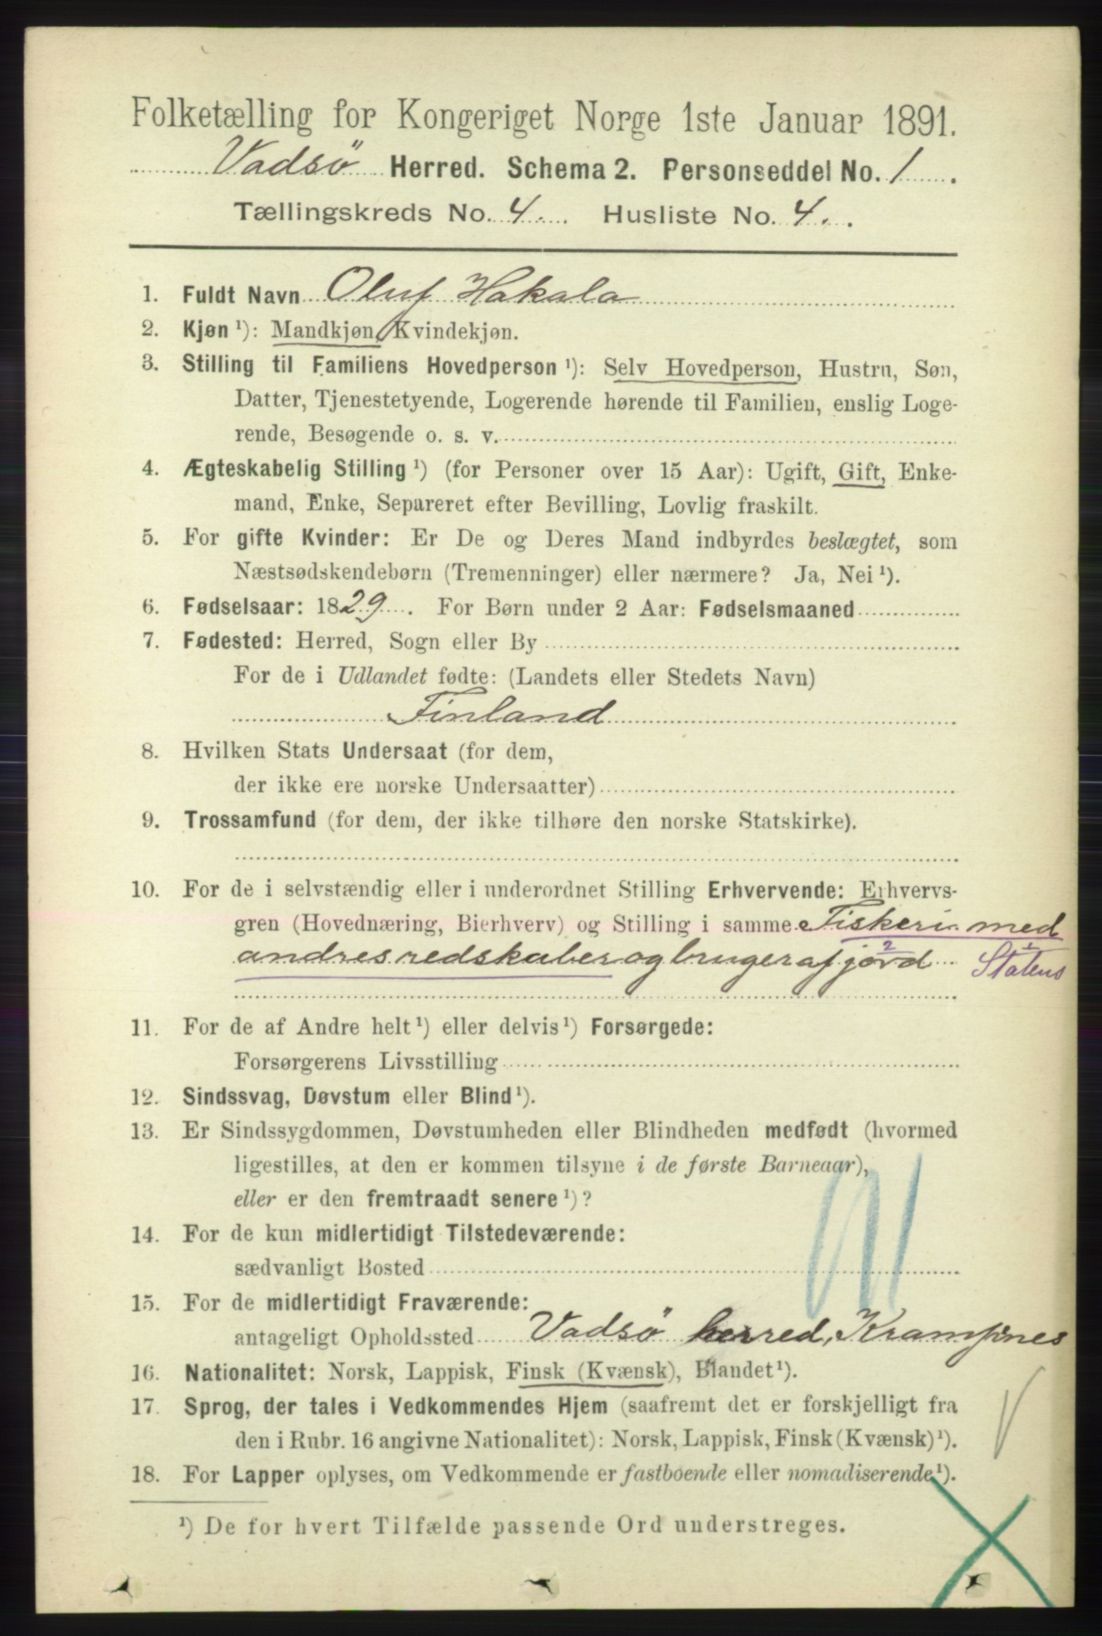 Folketælling for Kongeriget Norge 1ste Januar 1891.
Vadsö Herred. Schema 2. Personseddel No. 1.
Tællingskreds No. 4. Husliste No. 4.
1. Fuldt Navn Oluf Hakala
2. Kjøn ¹): Mandkjøn, Kvindekjøn.
3. Stilling til Familiens Hovedperson ¹): Selv Hovedperson, Hustru, Søn,
Datter, Tjenestetyende, Logerende hørende til Familien, enslig Loge-
rende, Besøgende o. s. v.
4. Ægteskabelig Stilling ¹) (for Personer over 15 Aar): Ugift, Gift, Enke-
mand, Enke, Separeret efter Bevilling, Lovlig fraskilt.
5. For gifte Kvinder: Er De og Deres Mand indbyrdes beslægtet, som
Næstsødskendebørn (Tremenninger) eller nærmere? Ja, Nei ¹).
6. Fødselsaar: 1829. For Børn under 2 Aar: Fødselsmaaned
7. Fødested: Herred, Sogn eller By
For de i Udlandet fødte: (Landets eller Stedets Navn)
Finland
8. Hvilken Stats Undersaat (for dem,
der ikke ere norske Undersaatter)
9. Trossamfund (for dem, der ikke tilhøre den norske Statskirke).
10. For de i selvstændig eller i underordnet Stilling Erhvervende: Erhvervs-
gren (Hovednæring, Bierhverv) og Stilling i samme Fiskeri med
andres redskaber og bruger af jord 2 1 Statens
11. For de af Andre helt ¹) eller delvis ¹) Forsørgede:
Forsørgerens Livsstilling
12. Sindssvag, Døvstum eller Blind ¹).
13. Er Sindssygdommen, Døvstumheden eller Blindheden medfødt (hvormed
ligestilles, at den er kommen tilsyne i de første Barneaar),
eller er den fremtraadt senere ¹)?
14. For de kun midlertidigt Tilstedeværende:
sædvanligt Bosted
15. For de midlertidigt Fraværende:
antageligt Opholdssted Vadsö herred, Krampenes
16. Nationalitet: Norsk, Lappisk, Finsk (Kvænsk), Blandet ¹).
17. Sprog, der tales i Vedkommendes Hjem (saafremt det er forskjelligt fra
den i Rubr. 16 angivne Nationalitet): Norsk, Lappisk, Finsk (Kvænsk) ¹).
18. For Lapper oplyses, om Vedkommende er fastboende eller nomadiserende ¹).
¹) De for hvert Tilfælde passende Ord understreges.